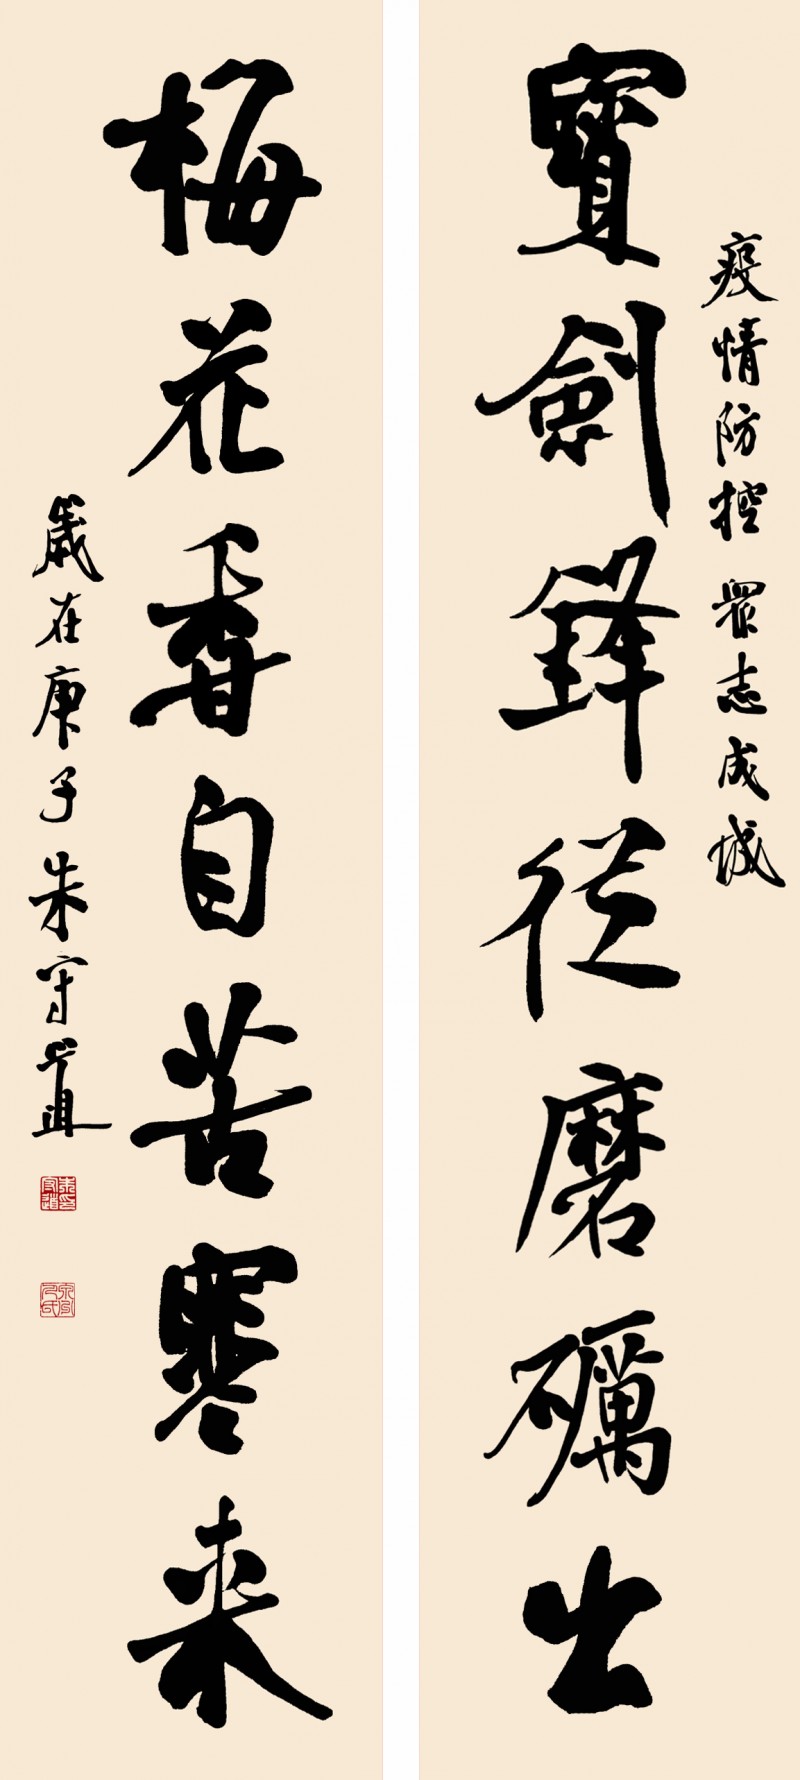 疫情防控 眾志成城
寶劍鋒從磨礪出
梅花香自苦寒來
歲在庚子朱守道